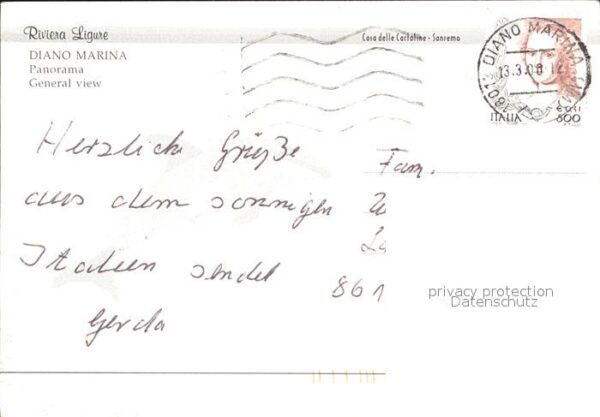 Riviera Ligure
DIANO MARINA
Panorama
General view
Casa delle Cartoline - Sanremo
DIANO MARINA
13.3.00 12
18013
ITALIA
800
Herzliche Grüße
aus dem sonnigen
Italien sendet
Gerda
Fam.
861
privacy protection
Datenschutz